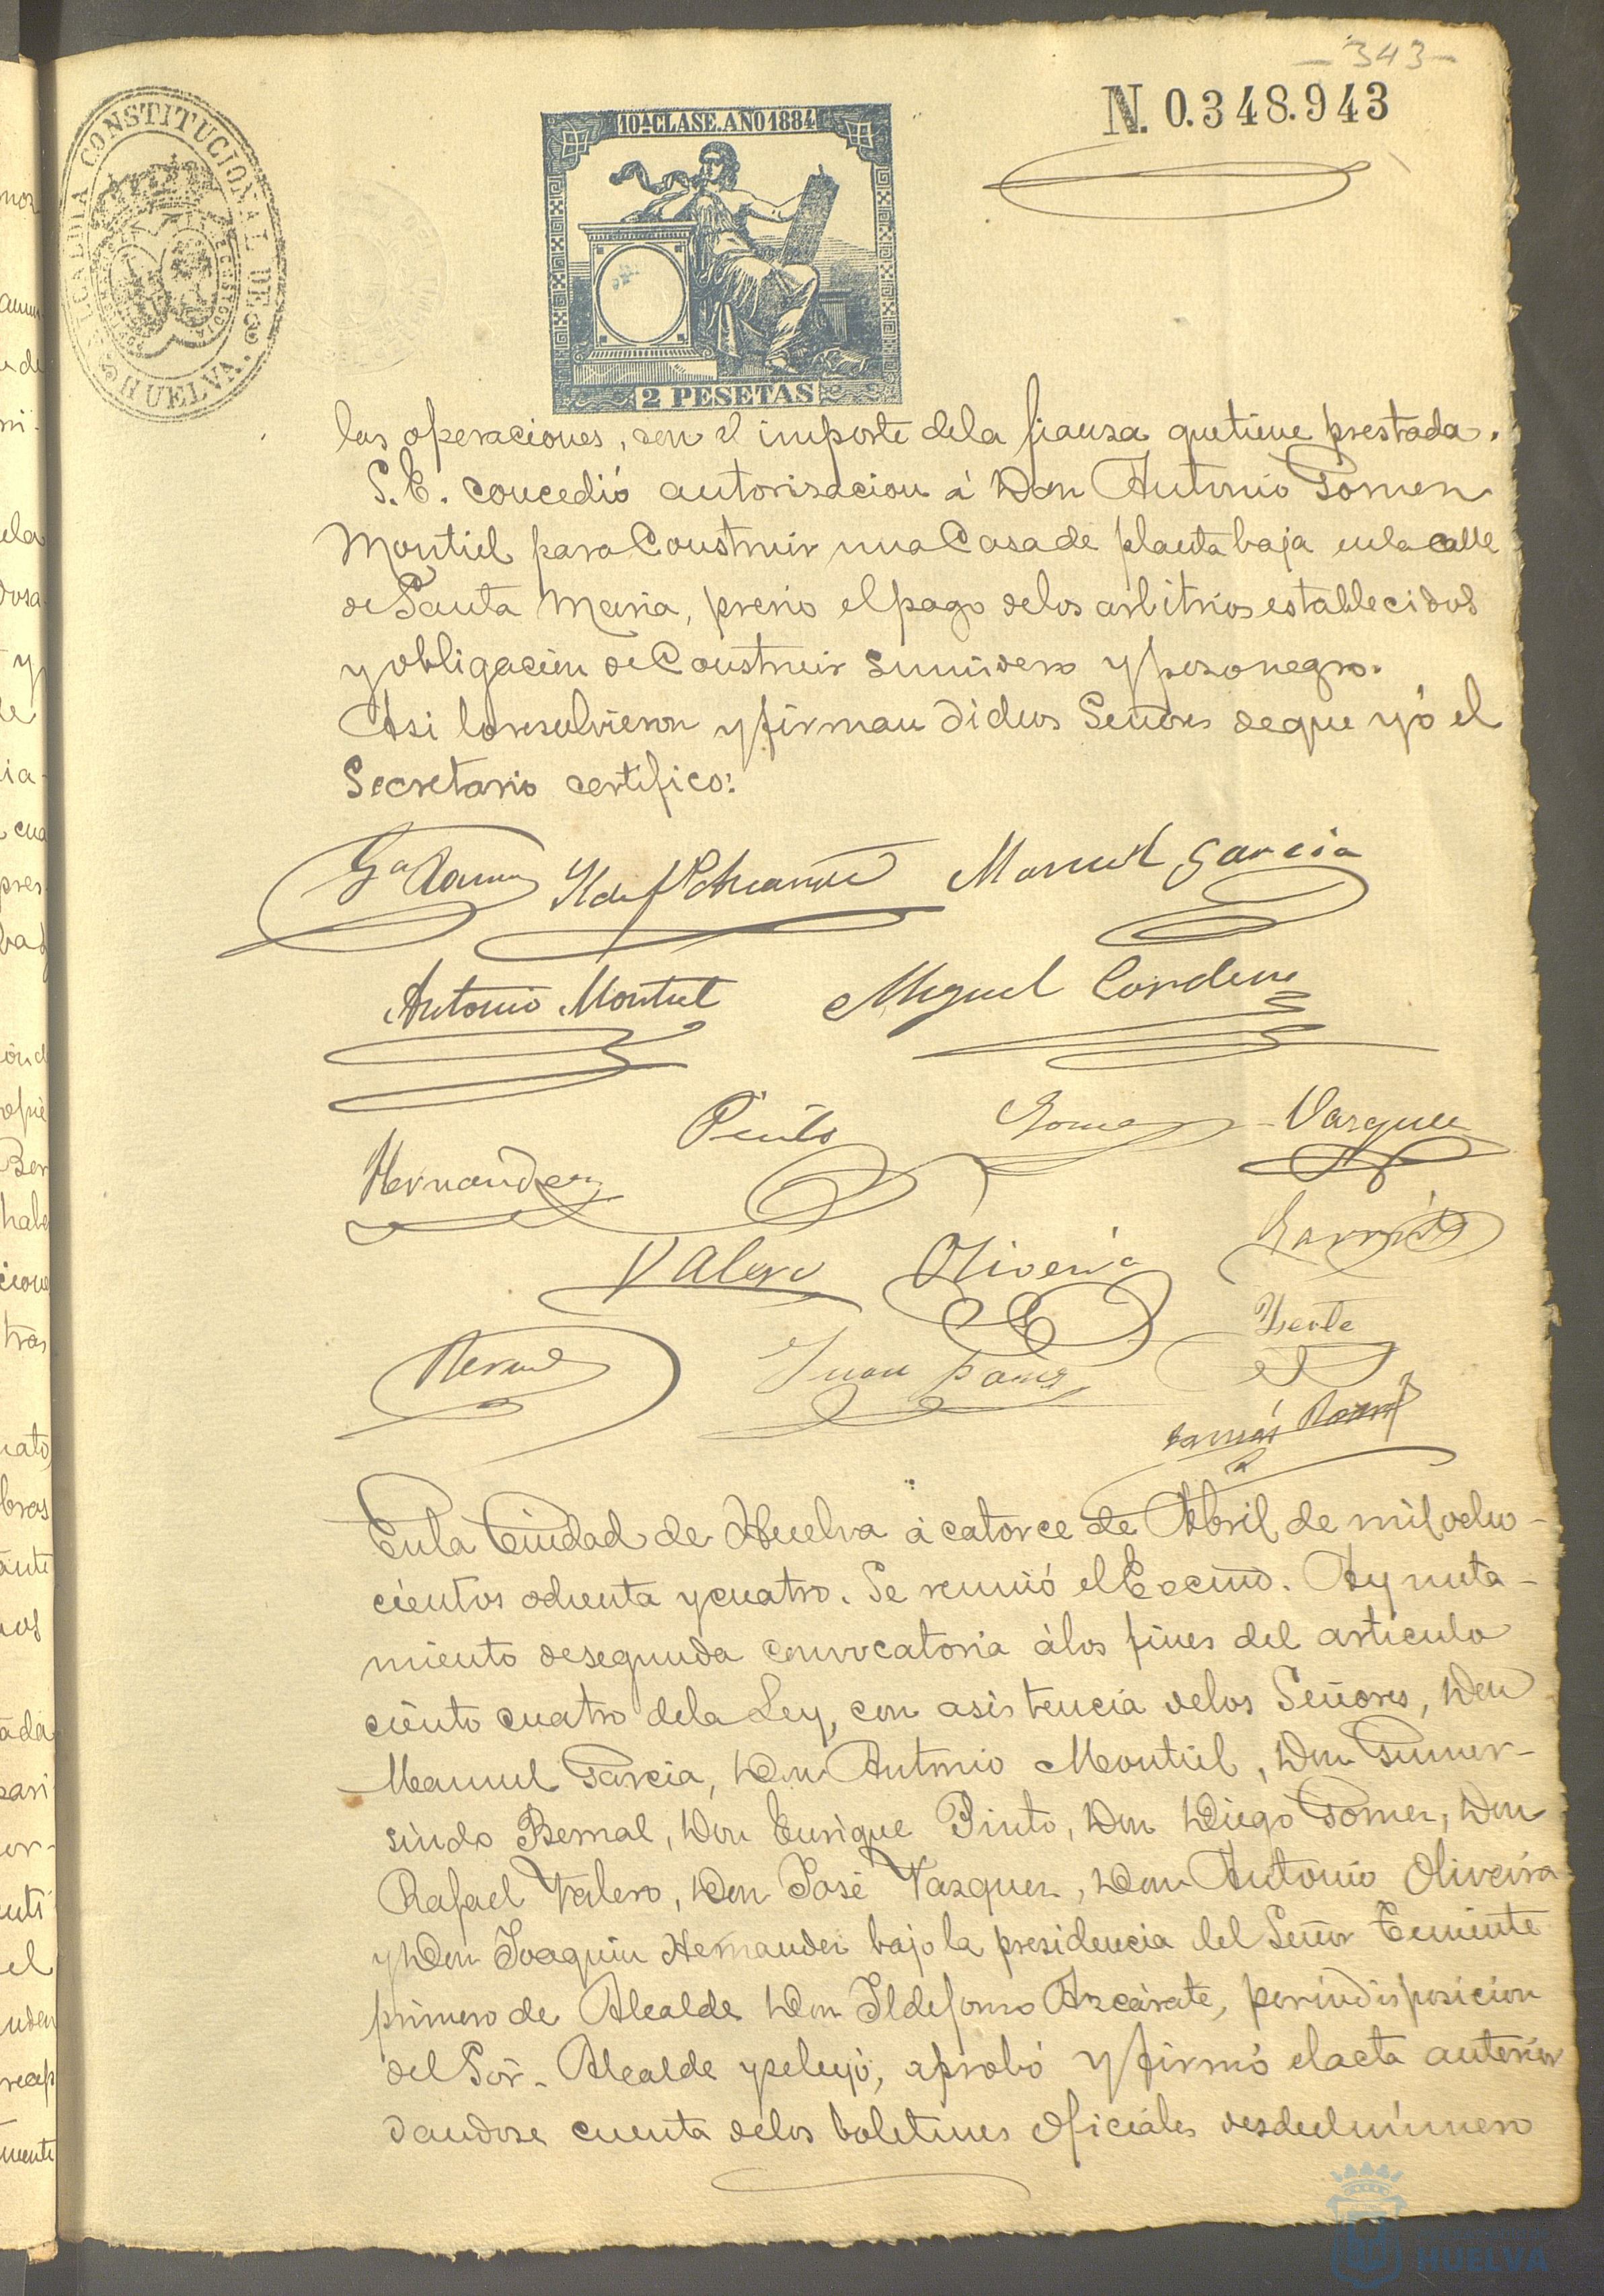 -343-
N. 0.348.943
ALCALDIA CONSTITUCIONAL DE HUELVA.
10ª CLASE. AÑO 1884
2 PESETAS
las operaciones, con el importe dela fianza quetiene prestada.
S.E. concedió autorisacion á Don Antonio Gomez
Montiel para Construir una Casa de planta baja enla calle
de Santa Maria, previo el pago delos arbitrios establecidos
y obligación de Construir sumidero y pozo negro.
Asi loresolvieron y firman dichos Señores deque yó el
Secretario certifico:
Manuel Garcia
Antonio Montiel Miguel Cordero
Pinto Gomez Vazquez
Hernandez
Valero Oliveira Garrido
Bernal Juan
Enla Ciudad de Huelva á catorce de Abril de mil ocho-
cientos ochenta y cuatro. Se reunió el Excmo. Ayunta-
miento desegunda convocatoria álos fines del articulo
ciento cuatro dela Ley, con asistencia delos Señores, Don
Manuel Garcia, Don Antonio Montiel, Don Gumer-
sindo Bernal, Don Enrique Pinto, Don Diego Gomez, Don
Rafael Valero, Don José Vazquez, Don Antonio Oliveira
y Don Joaquin Hernandez bajo la presidencia del Señor Teniente
primero de Alcalde Don Ildefonso Azcárate, por indisposicion
del Sor. Alcalde y seleyó, aprobó y firmó elacta anterior
dandose cuenta delos boletines oficiales desdeelnúmero
HUELVA